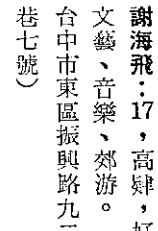 謝海飛：17，高肄，好
文藝、音樂、郊游。
台中市東區振興路九
巷七號）